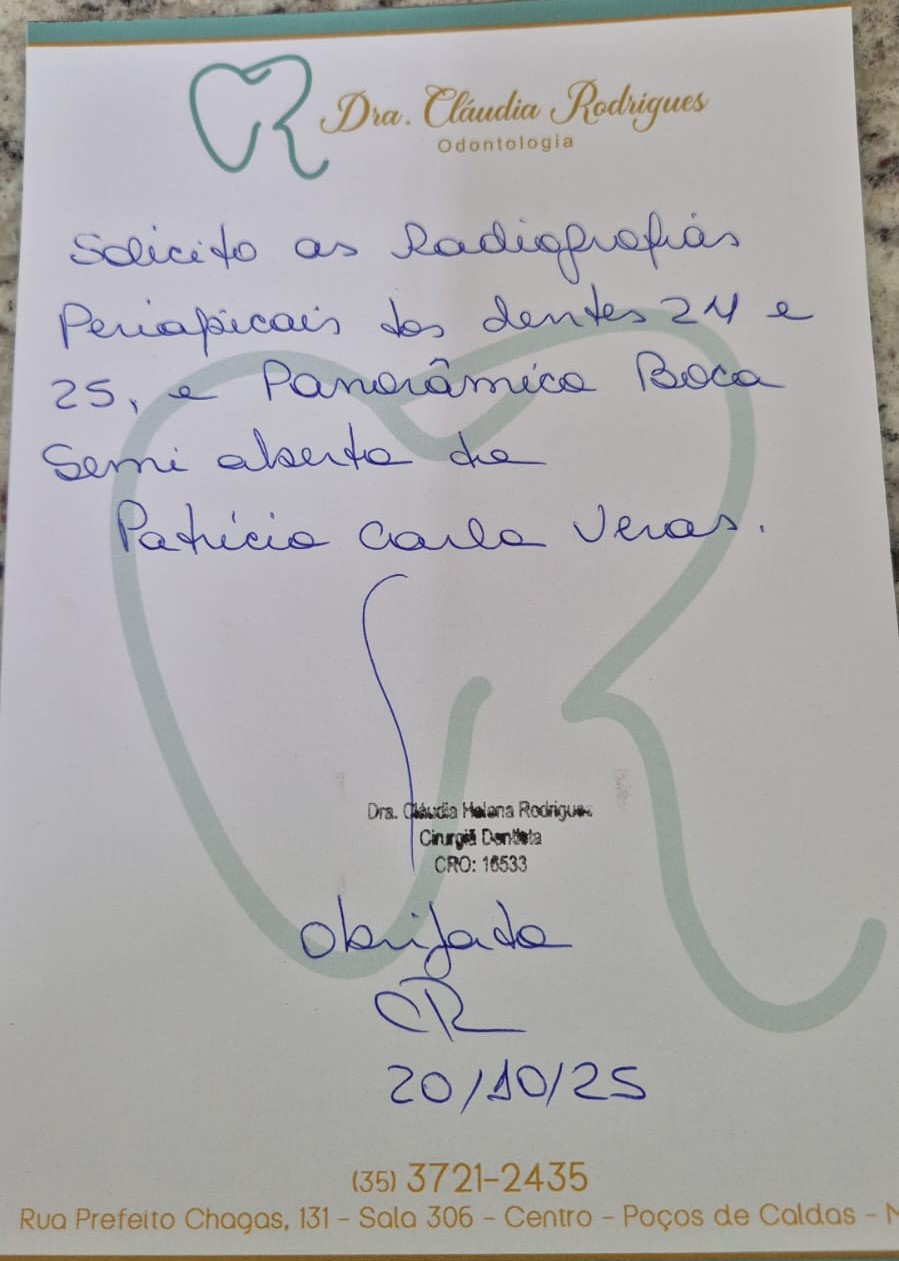 Dra. Cláudia Rodrigues
Odontologia
Solicito as Radiografias
Periapicais dos dentes 24 e
25, e Panorâmica Boca
Semi aberta de
Patrícia Carla Veras.
Dra. Cláudia Helena Rodrigues
Cirurgiã Dentista
CRO: 16533
Obrigada
CR
20/10/25
(35) 3721-2435
Rua Prefeito Chagas, 131 - Sala 306 - Centro - Poços de Caldas - M